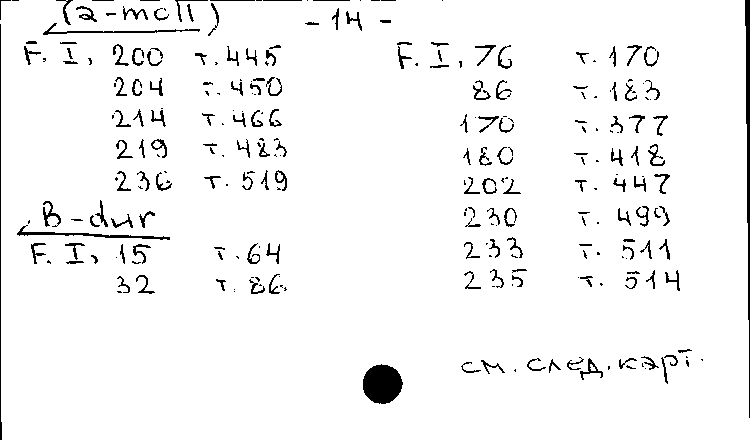 (a-moll) - 14 -
F. I, 200 т. 445
204 т. 450
214 т. 466
219 т. 483
236 т. 519
B-dur
F. I, 15 т. 64
32 т. 86
F. I, 76 т. 170
86 т. 183
170 т. 377
180 т. 418
202 т. 447
230 т. 499
233 т. 511
235 т. 514
см. след. карт.